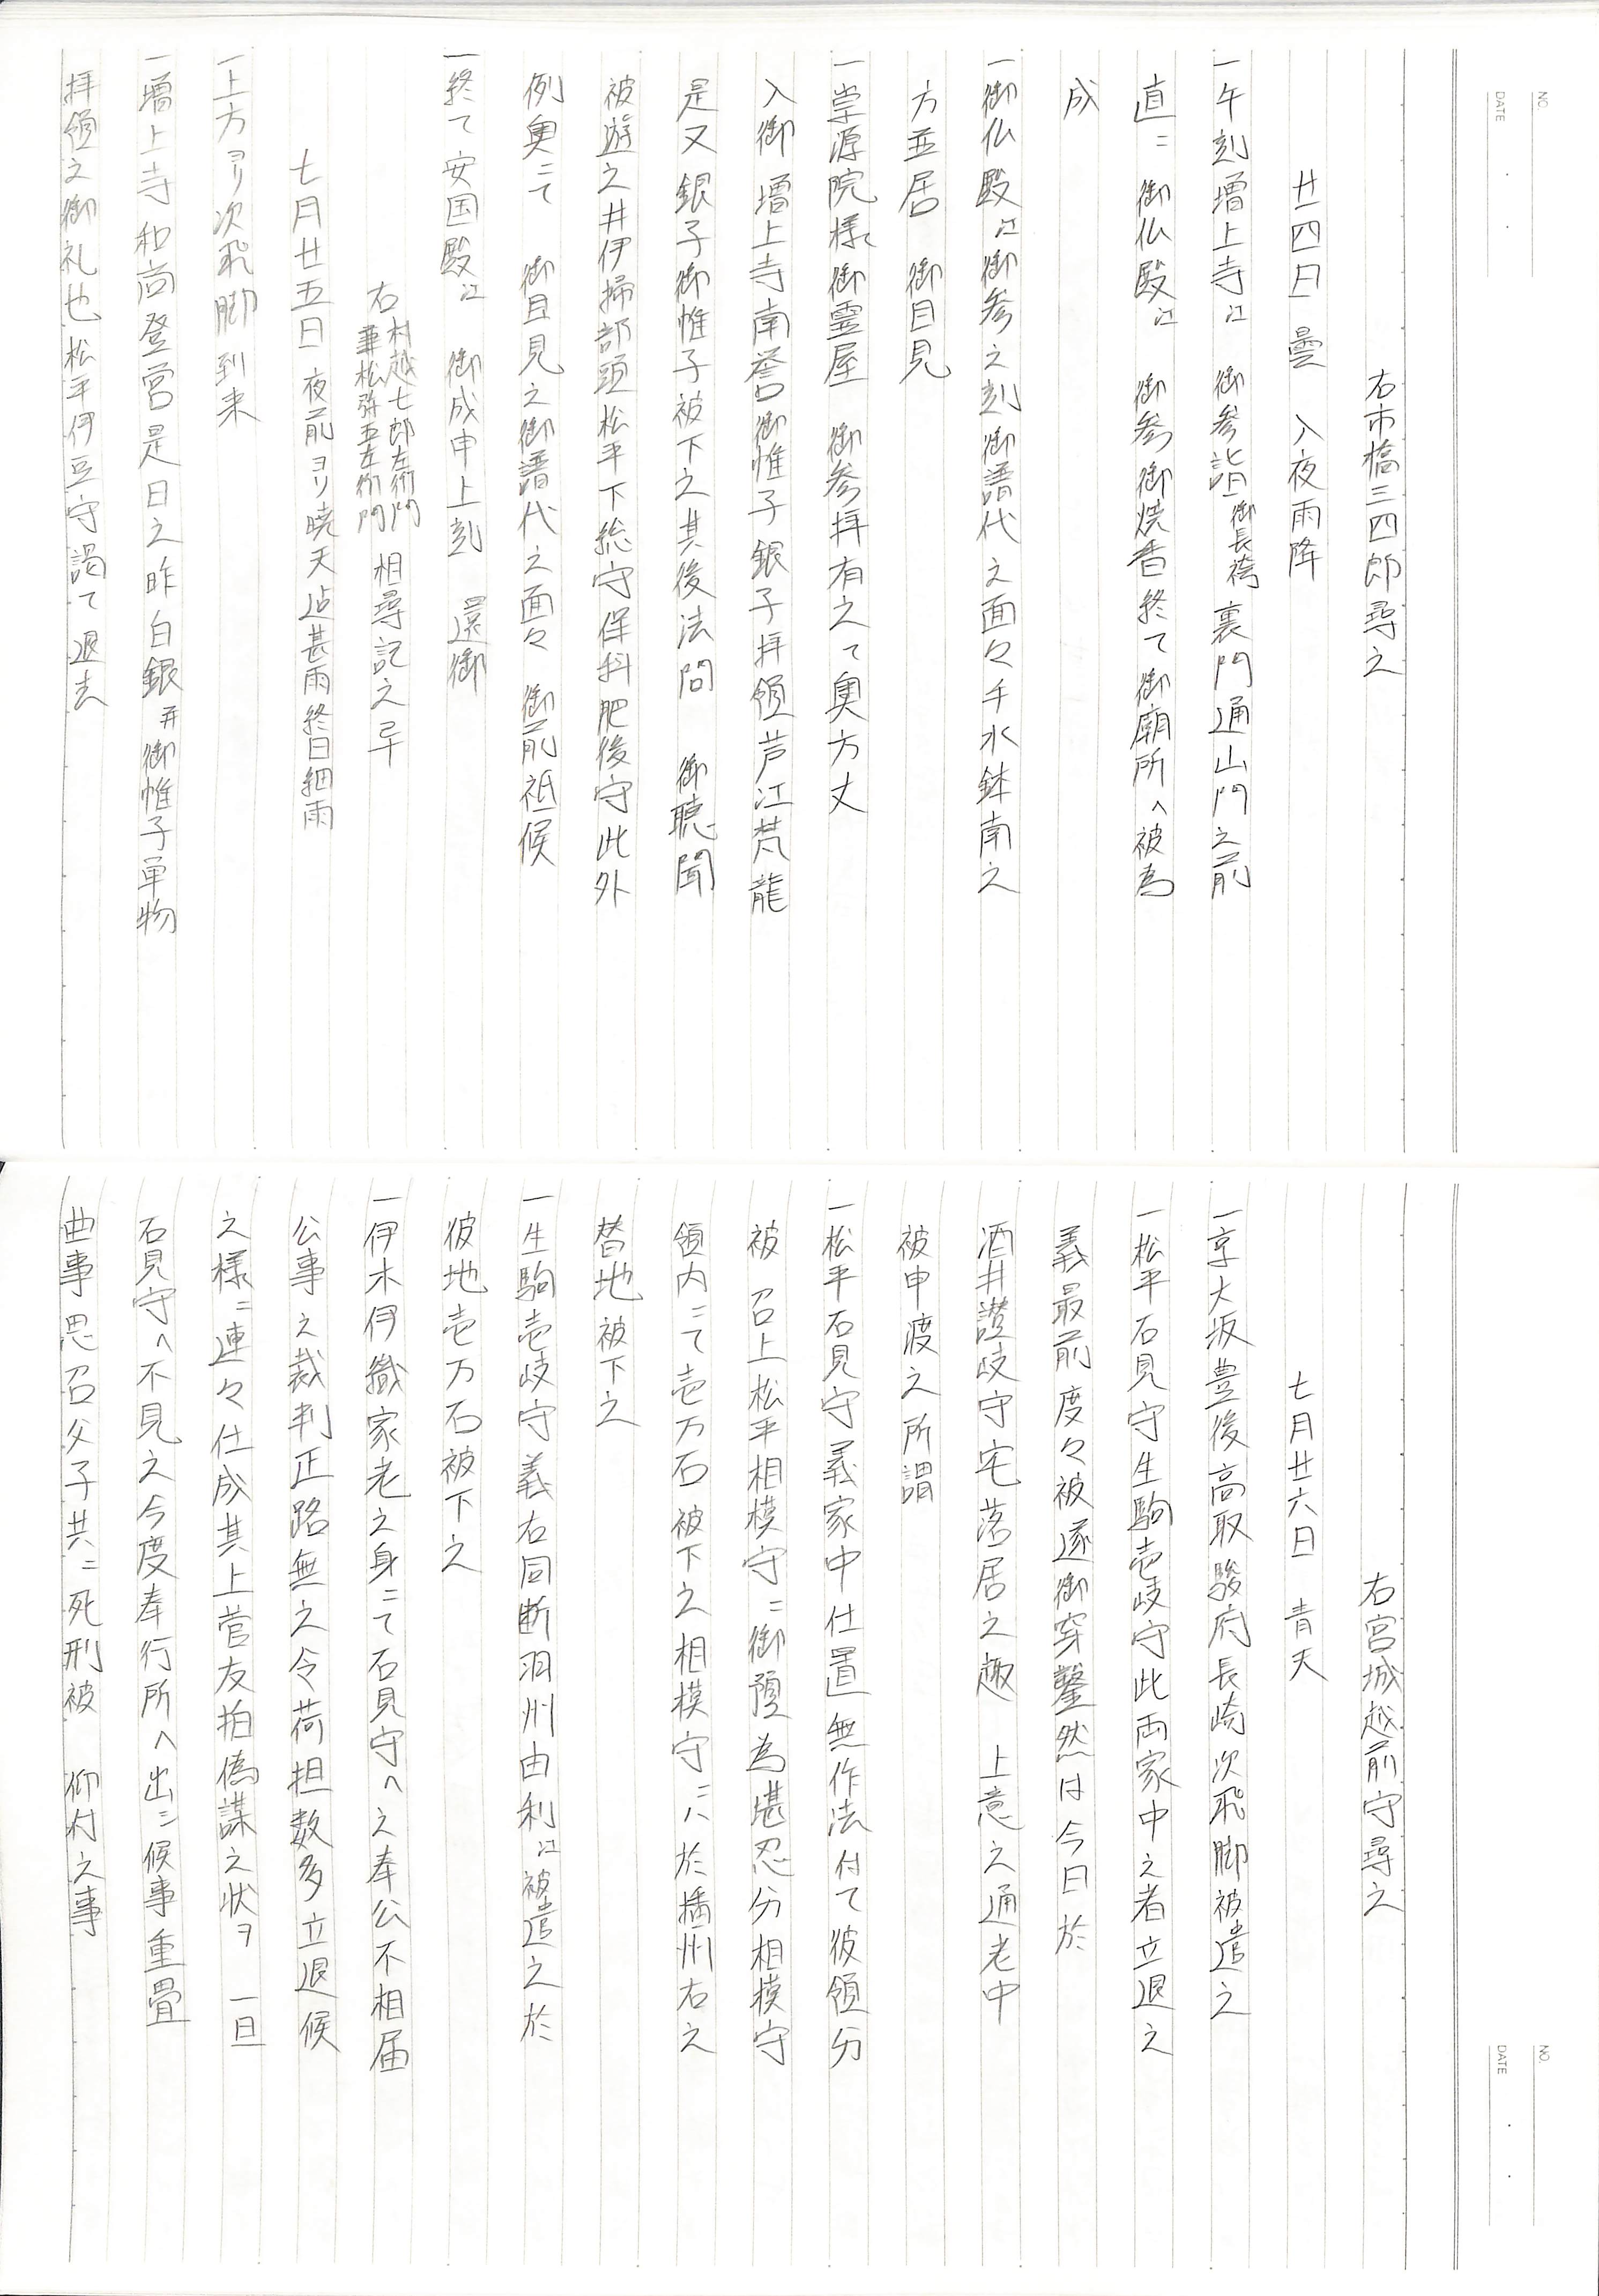 NO.
DATE
右市橋三四郎尋之
廿四日 曇 入夜雨降
一午刻増上寺江 御参詣御長袴裏門通山門之前
直ニ 御仏殿江 御参御焼香終て御廟所へ被為
成
一御仏殿江御参之刻御譜代之面々手水鉢南之
方並居 御目見
一崇源院様御霊屋 御参拝有之て奥方丈
入御 増上寺南誉御惟子銀子拝領芦江梵龍
是又銀子御惟子被下之其後法問 御聴聞
被遊之井伊掃部頭松平下総守保科肥後守此外
例奥ニて 御目見之御譜代之面々 御前祗候
一終て安国殿江 御成申上刻 還御
右村越七郎左衛門
兼松弥五左衛門 相尋記之畢
七月廿五日 夜前ヨリ暁天迠甚雨終日細雨
一上方ヨリ次飛脚到来
一増上寺和尚登営是日之昨白銀并御惟子単物
拝領之御礼也松平伊豆守謁て退去
NO.
DATE
右宮城越前守尋之
七月廿六日 青天
一京大坂豊後高取駿府長崎次飛脚被遣之
一松平石見守生駒壱岐守此両家中之者立退之
義最前度々被遂御穿鑿然は今日於
酒井讃岐守宅落居之趣 上意之通老中
被申渡之所謂
一松平石見守義家中仕置無作法付て彼領分
被 召上松平相模守ニ御預為堪忍分相模守
領内ニて壱万石被下之相模守ニハ於播州右之
替地被下之
一生駒壱岐守義右同断羽州由利江被遣之於
彼地壱万石被下之
一伊木伊織家老之身ニて石見守へ之奉公不相届
公事之裁判正路無之令荷担数多立退候
之様ニ連々仕成其上菅友拍偽謀之状ヲ 一旦
石見守へ不見之今度奉行所へ出ニ候事重畳
曲事思召父子共ニ死刑被 仰付之事